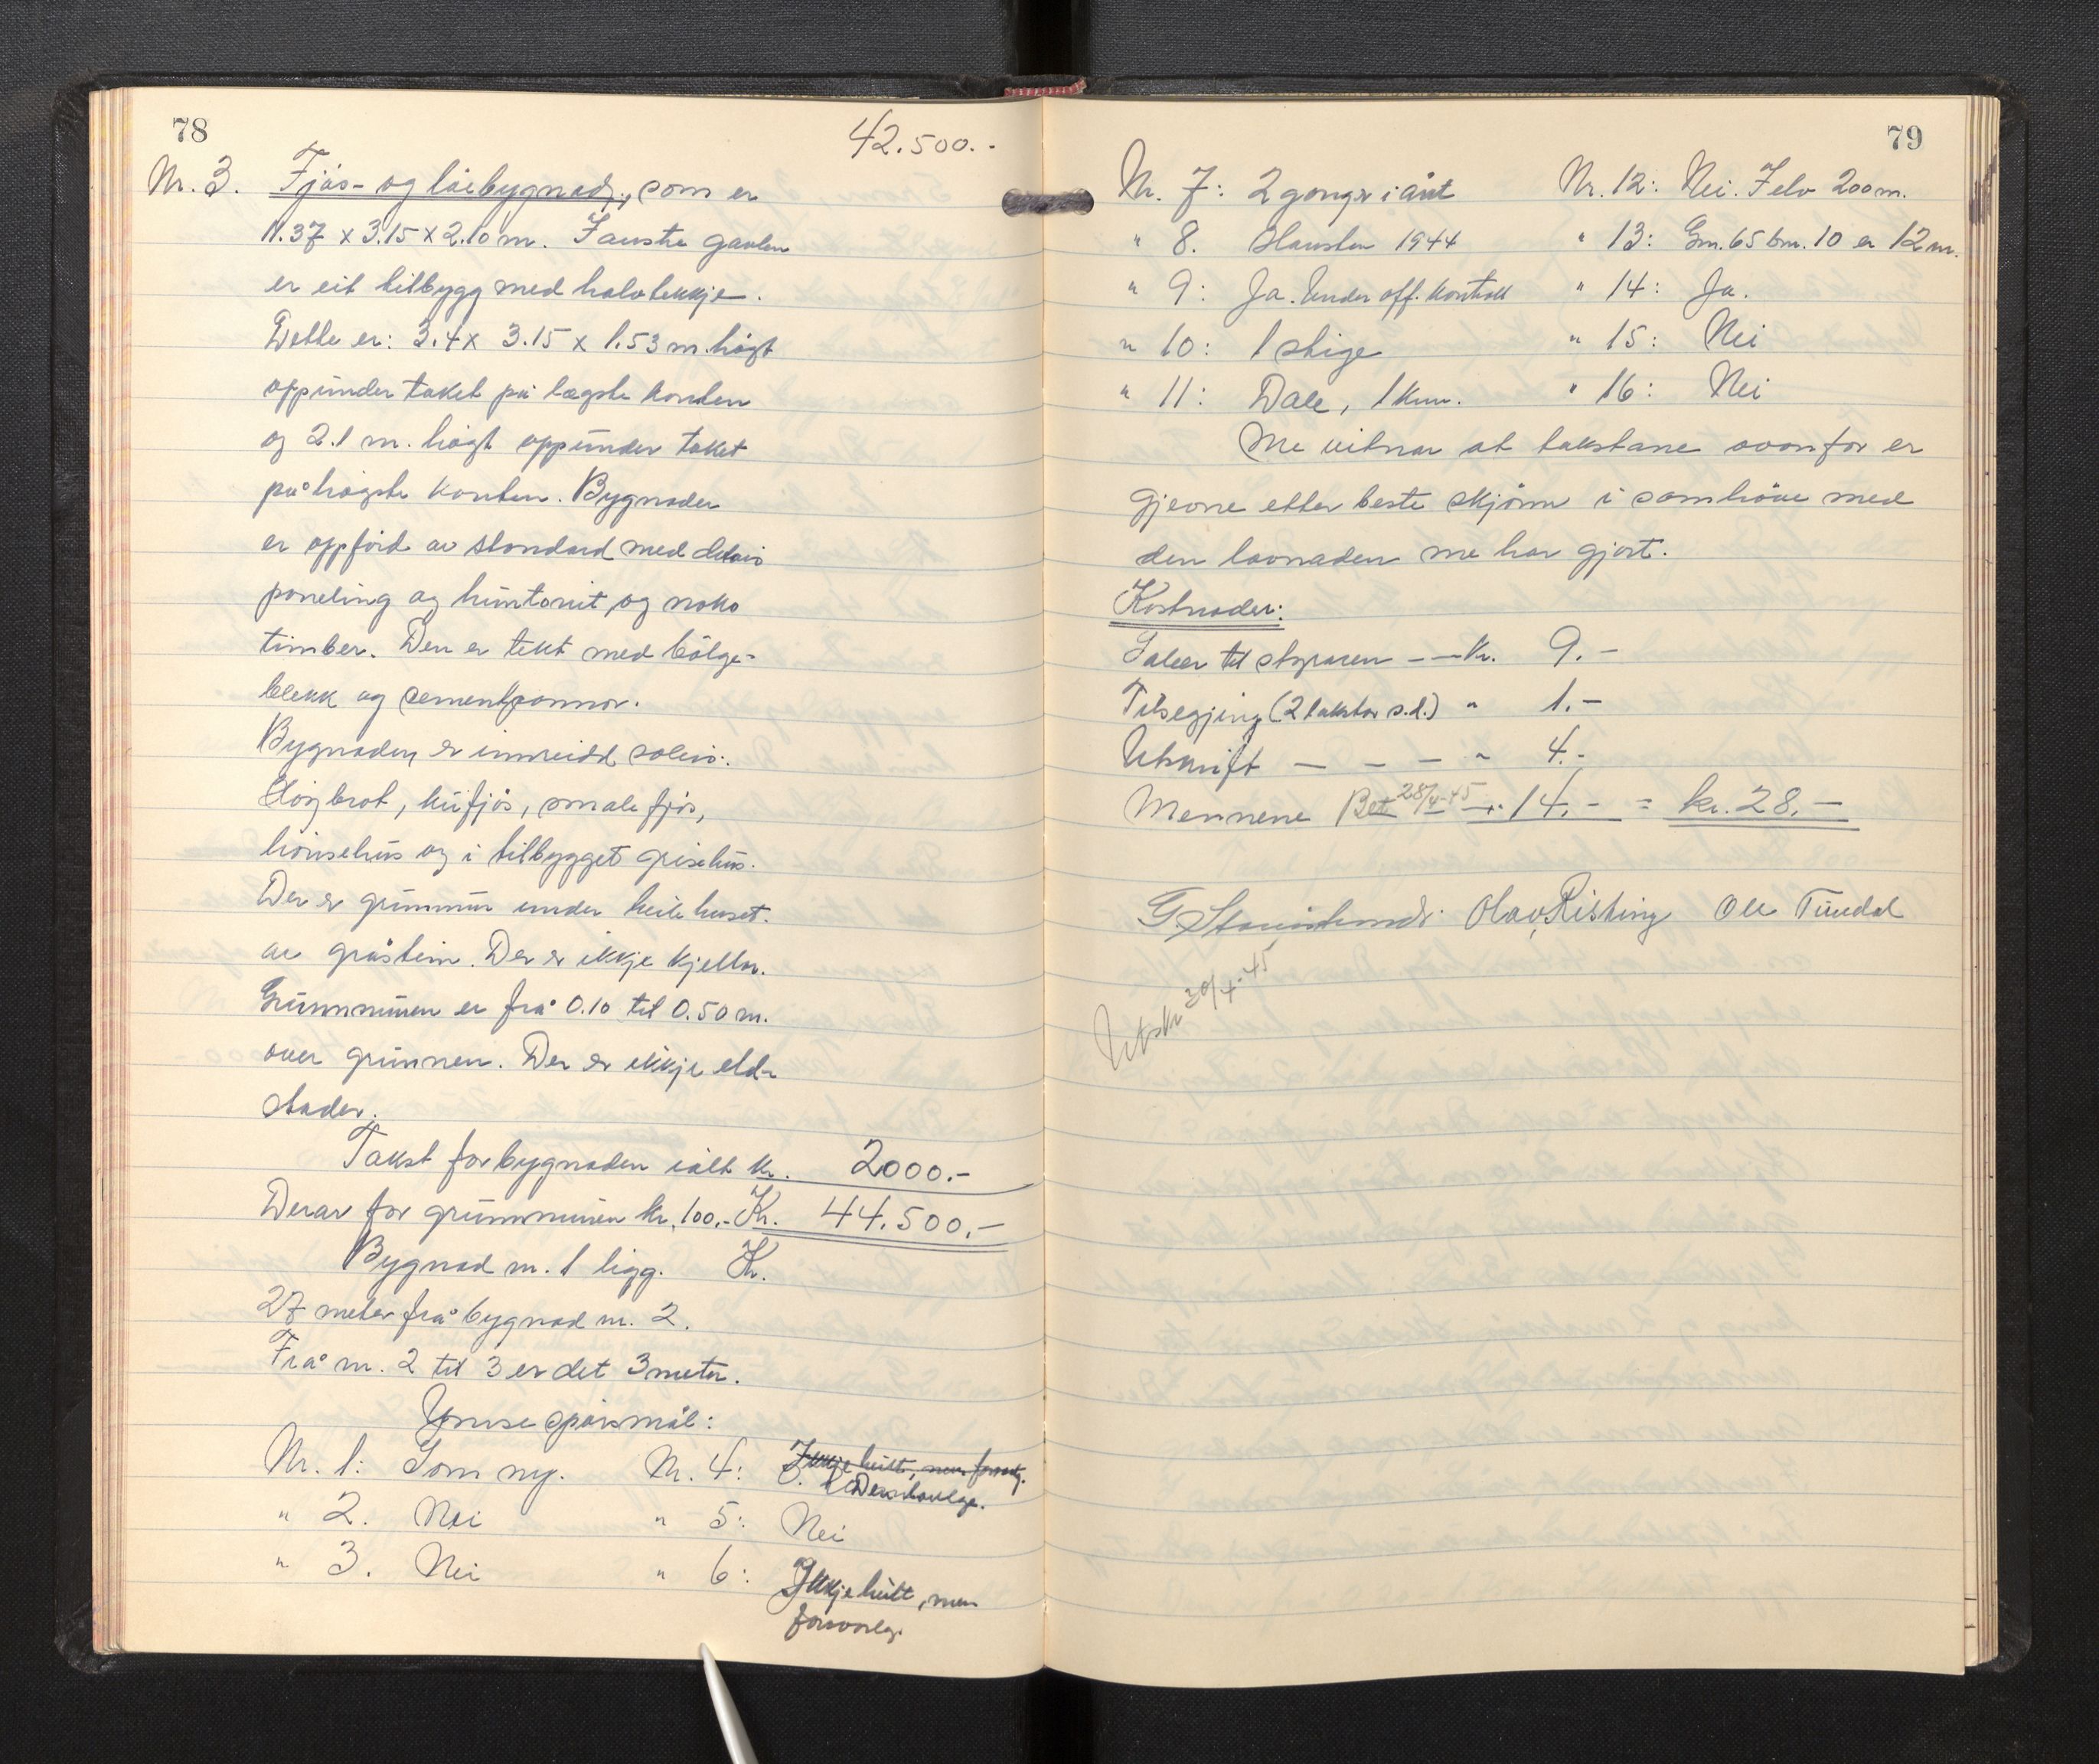 78
42.500.-
Nr. 3. Fjøs- og løebygnad, som er
11.37 x 3.15 x 2.10 m. Fauste gavlen
er eit tilbygg med halvtekkje.
Dette er: 3.4 x 3.15 x 1.53 m. høgt
oppunder taket på lægste kanten
og 2.1 m. høgt oppunder taket
på høgste kanten. Bygnaden
er oppförd av standard med
paneling og huntonit, og noko
timber. Den er tekt med bölge-
blekk og sementpannor.
Bygnaden er innreidd soleis:
Högbrot, kufjös, smalefjös,
hönsehus og i tilbygget grisehus.
Der er grunnmur under heile huset.
av gråstein. Der er ikkje kjellar.
Grunnmuren er frå 0.10 til 0.50 m.
over grunnen. Der er ikkje eld-
stader.
Takst for bygnaden ialt kr. 2000.-
Derav for grunnmuren kr. 100.- Kr. 44.500.-
Bygnad nr. 1 ligg. Kr.
27 meter frå bygnad nr. 2.
Frå nr. 2 til 3 er det 3 meter.
Ymse spörsmål:
Nr. 1: Som ny. Nr. 4: Ikkje heilt, men forsvarleg.
" 2. Nei " 5: Nei
" 3. Nei " 6: Ikkje heilt, men
forsvarleg.
79
Nr. 7: 2 gonger i året Nr. 12: Nei. Telv 200 m.
" 8. Hausten 1944 " 13: Gm. 65 bm. 10 er 12 m.
" 9: Ja. Under off. kontroll " 14: Ja.
" 10: 1 stige " 15: Nei
" 11: Dale, 1 km. " 16: Nei
Me vitnar at takstane ovanfor er
gjevne etter beste skjönn i samhöve med
den lovnaden me har gjort.
Kostnader:
Salær til styraren - - Kr. 9.-
Tilsegjing (2 takstar s.d.) " 1.-
Utskrift - - - " 4.-
Mennene Bet 28/4-45 14.- = kr. 28.-
Olav Risting Ole Tundal
Utskr 30/4-45